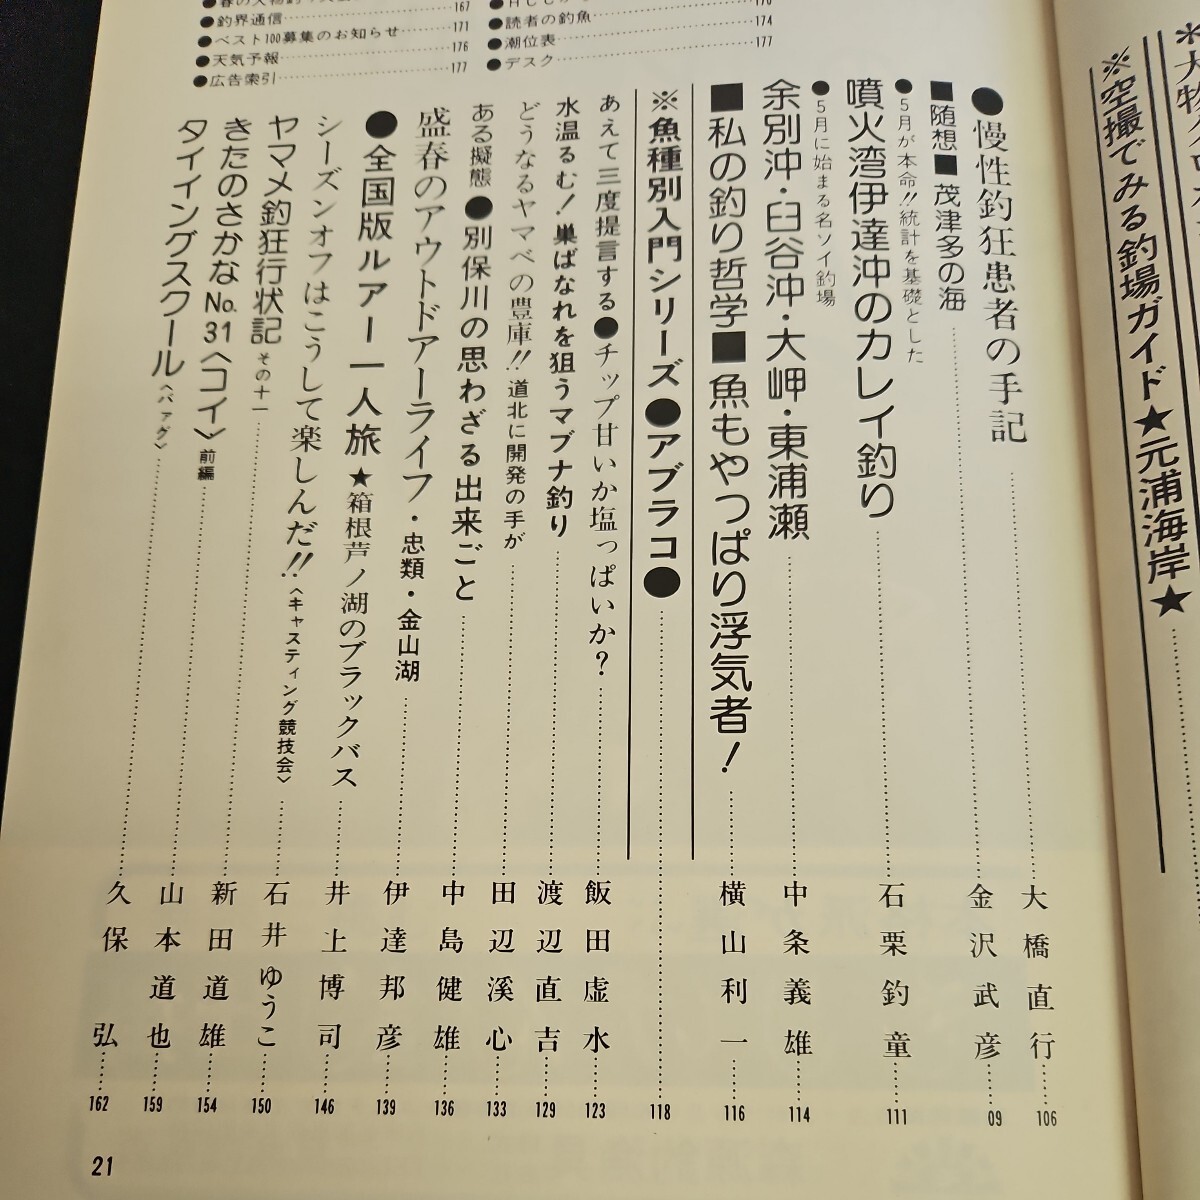 ※空撮でみる釣場ガイド★元浦海岸★
●慢性釣狂患者の手記……大橋直行……106
■随想■ 茂津多の海……金沢武彦……09
●5月が本命!!統計を基礎とした
噴火湾伊達沖のカレイ釣り……石栗釣童……111
●5月に始まる名ソイ釣場
余別沖・臼谷沖・大岬・東浦瀬……中条義雄……114
■私の釣り哲学■魚もやっぱり浮気者!……横山利一……116
※魚種別入門シリーズ●アブラコ●……118
あえて三度提言する●チップ甘いか塩っぱいか?……飯田虚水……123
水温るむ!巣ばなれを狙うマブナ釣り……渡辺直吉……129
どうなるヤマベの豊庫!!道北に開発の手が……田辺溪心……133
ある擬態●別保川の思わざる出来ごと……中島健雄……136
盛春のアウトドアーライフ・忠類・金山湖……伊達邦彦……139
●全国版ルアー一人旅★箱根芦ノ湖のブラックバス……井上博司……146
シーズンオフはこうして楽しんだ!!〈キャスティング競技会〉……石井ゆうこ……150
ヤマメ釣狂行状記 その十一……新田道雄……154
きたのさかなNo.31〈コイ〉前編……山本道也……159
タイイングスクール〈バァグ〉……久保 弘……162
167
●釣界通信……171
●ベスト100募集のお知らせ……176
●天気予報……177
●広告索引
●読者の釣魚……174
●潮位表……177
●デスク
21